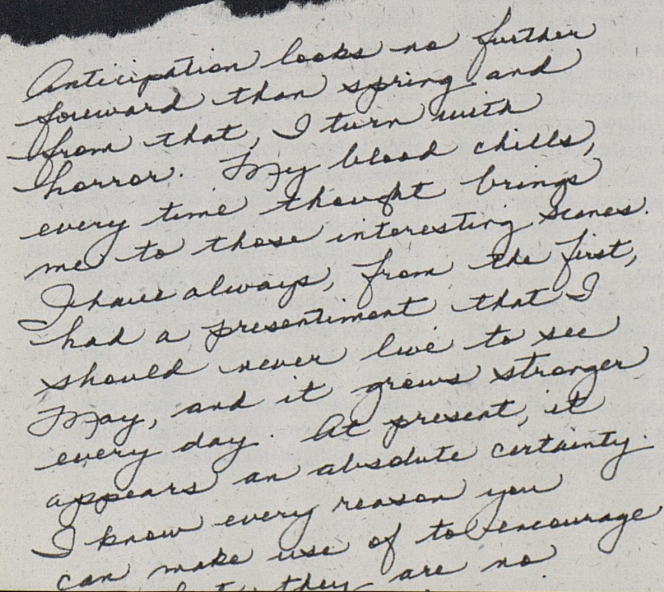 Anticipation looks no further
foreward than spring and
from that, I turn with
horror. My blood chills,
every time thought brings
me to those interesting scenes.
I have always, from the first,
had a presentiment that I
should never live to see
May, and it grows stronger
every day. At present, it
appears an absolute certainty.
I know every reason you
can make use of to encourage
they are no